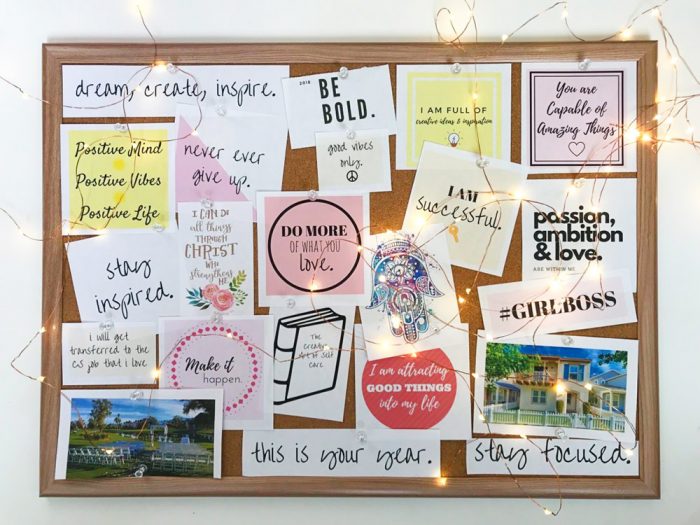 dream, create, inspire.
2018
BE
BOLD.
I AM FULL OF
creative ideas & inspiration
You are
Capable of
Amazing Things
Positive Mind
Positive Vibes
Positive Life
never ever
give up.
good vibes
only.
I AM
successful.
I CAN DO
all things
THROUGH
CHRIST
WHO
strengthens
ME
DO MORE
OF WHAT YOU
Love.
passion,
ambition
& love.
ARE WITHIN ME.
stay
inspired.
#GIRLBOSS
i will get
transferred to the
CS job that i love
Make it
happen.
The
Creative
Art of Self
Care
I am attracting
GOOD THINGS
into my life
this is your year.
stay focused.